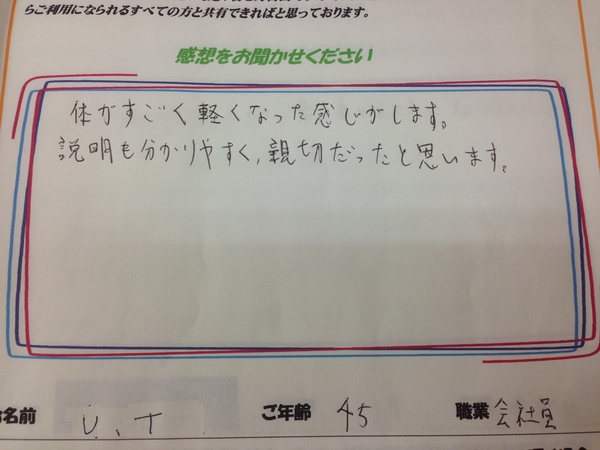 らご利用になられるすべての方と共有できればと思っております。
感想をお聞かせください
体がすごく軽くなった感じがします。
説明も分かりやすく、親切だったと思います。
名前 U.T ご年齢 45 職業 会社員